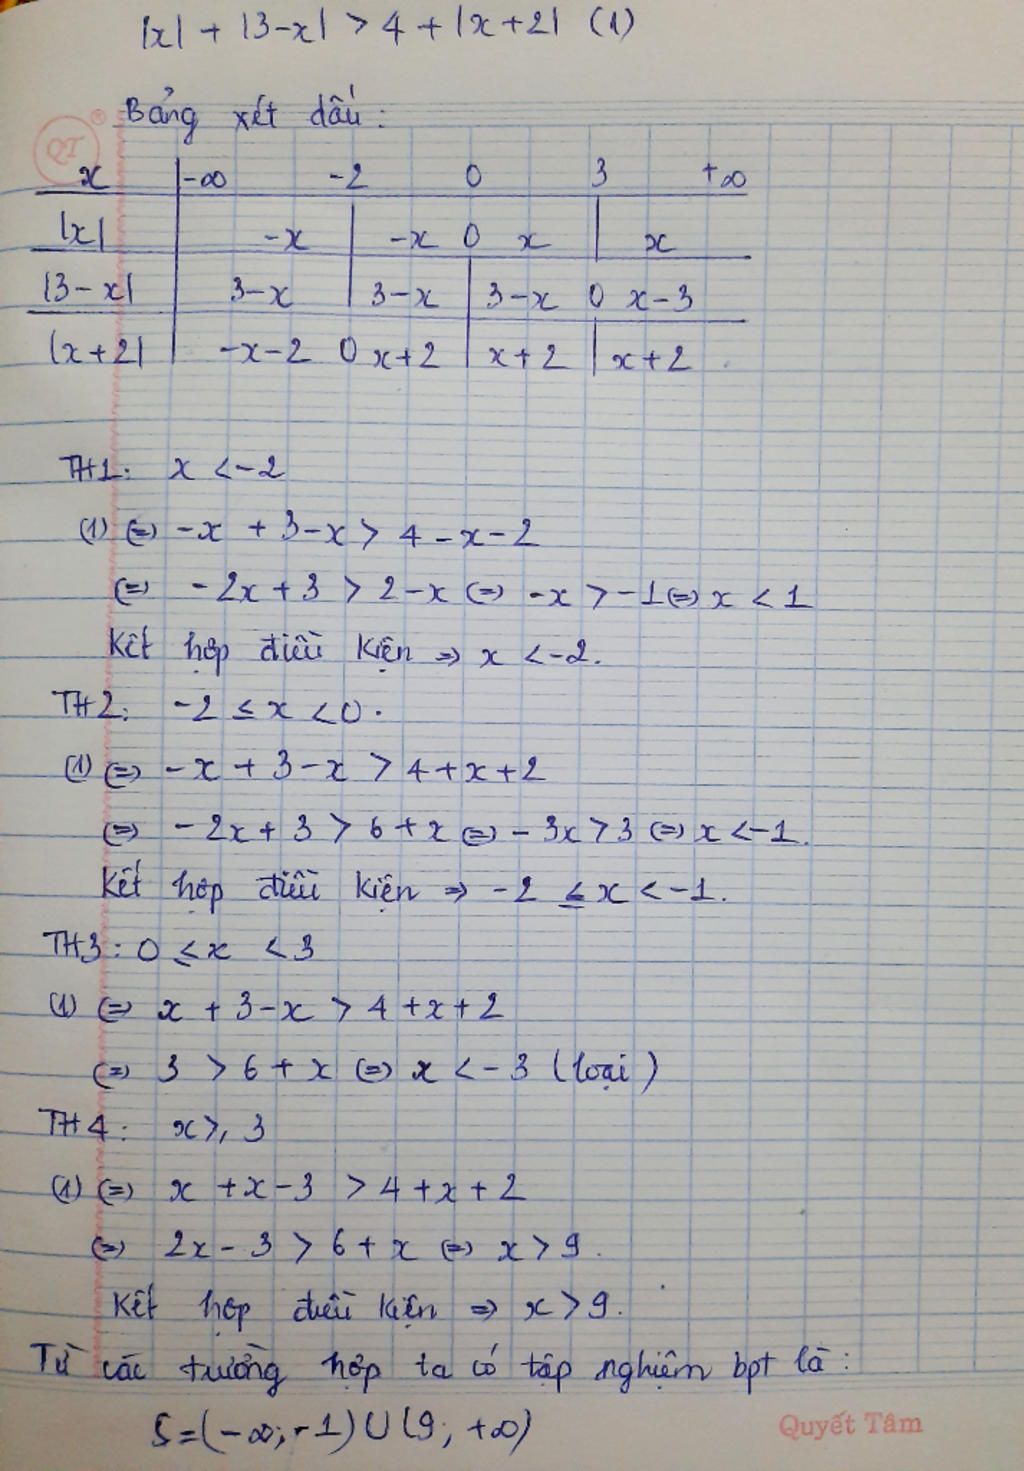 |x| + |3-x| > 4 + |x+2| (1)
Bảng xét dấu:
QT ®
x -∞ -2 0 3 +∞
|x| -x -x 0 x x
|3-x| 3-x 3-x 3-x 0 x-3
|x+2| -x-2 0 x+2 x+2 x+2
TH1: x <-2
(1) (=) -x + 3-x > 4-x-2
(=) -2x+3 > 2-x (=) -x > -1 (=) x < 1
Kết hợp điều kiện => x <-2.
TH2: -2 ≤ x <0.
(1) (=) -x + 3-x > 4+x+2
(=) -2x+3 > 6+x (=) -3x>3 (=) x <-1.
Kết hợp điều kiện => -2 ≤ x < -1.
TH3: 0 ≤ x < 3
(1) (=) x + 3-x > 4+x+2
(=) 3 > 6 + x (=) x <-3 (loại)
TH4: x ≥ 3
(1) (=) x +x-3 > 4+x+2
(=) 2x-3 > 6+x (=) x>9.
Kết hợp điều kiện => x>9.
Từ các trường hợp ta có tập nghiệm bpt là:
S=(-∞;-1)∪(9; +∞)
Quyết Tâm